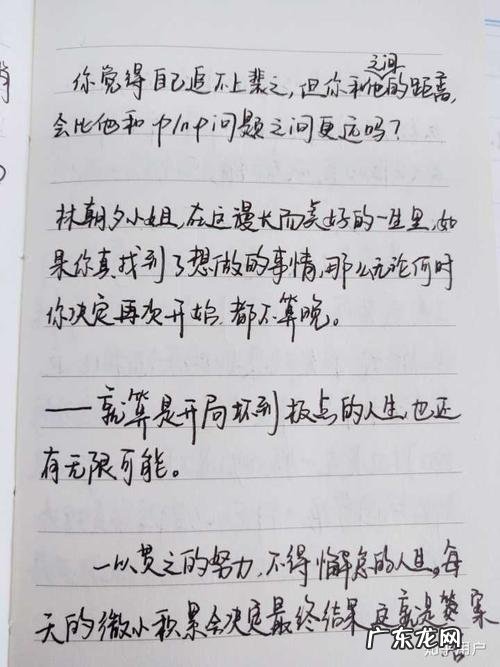 你觉得自己追不上裴之，但你和他之间的距离，
会比他和P/NP问题之间更远吗？
林朝夕小姐，在这漫长而美好的一生里，如
果你真找到了想做的事情，那么无论何时
你决定再次开始，都不算晚。
——就算是开局坏到极点的人生，也还
有无限可能。
一以贯之的努力，不得懈怠的人生。每
天的微小积累会决定最终结果，这就是答案
知乎用户
广东龙网
www.gdcoolo.com